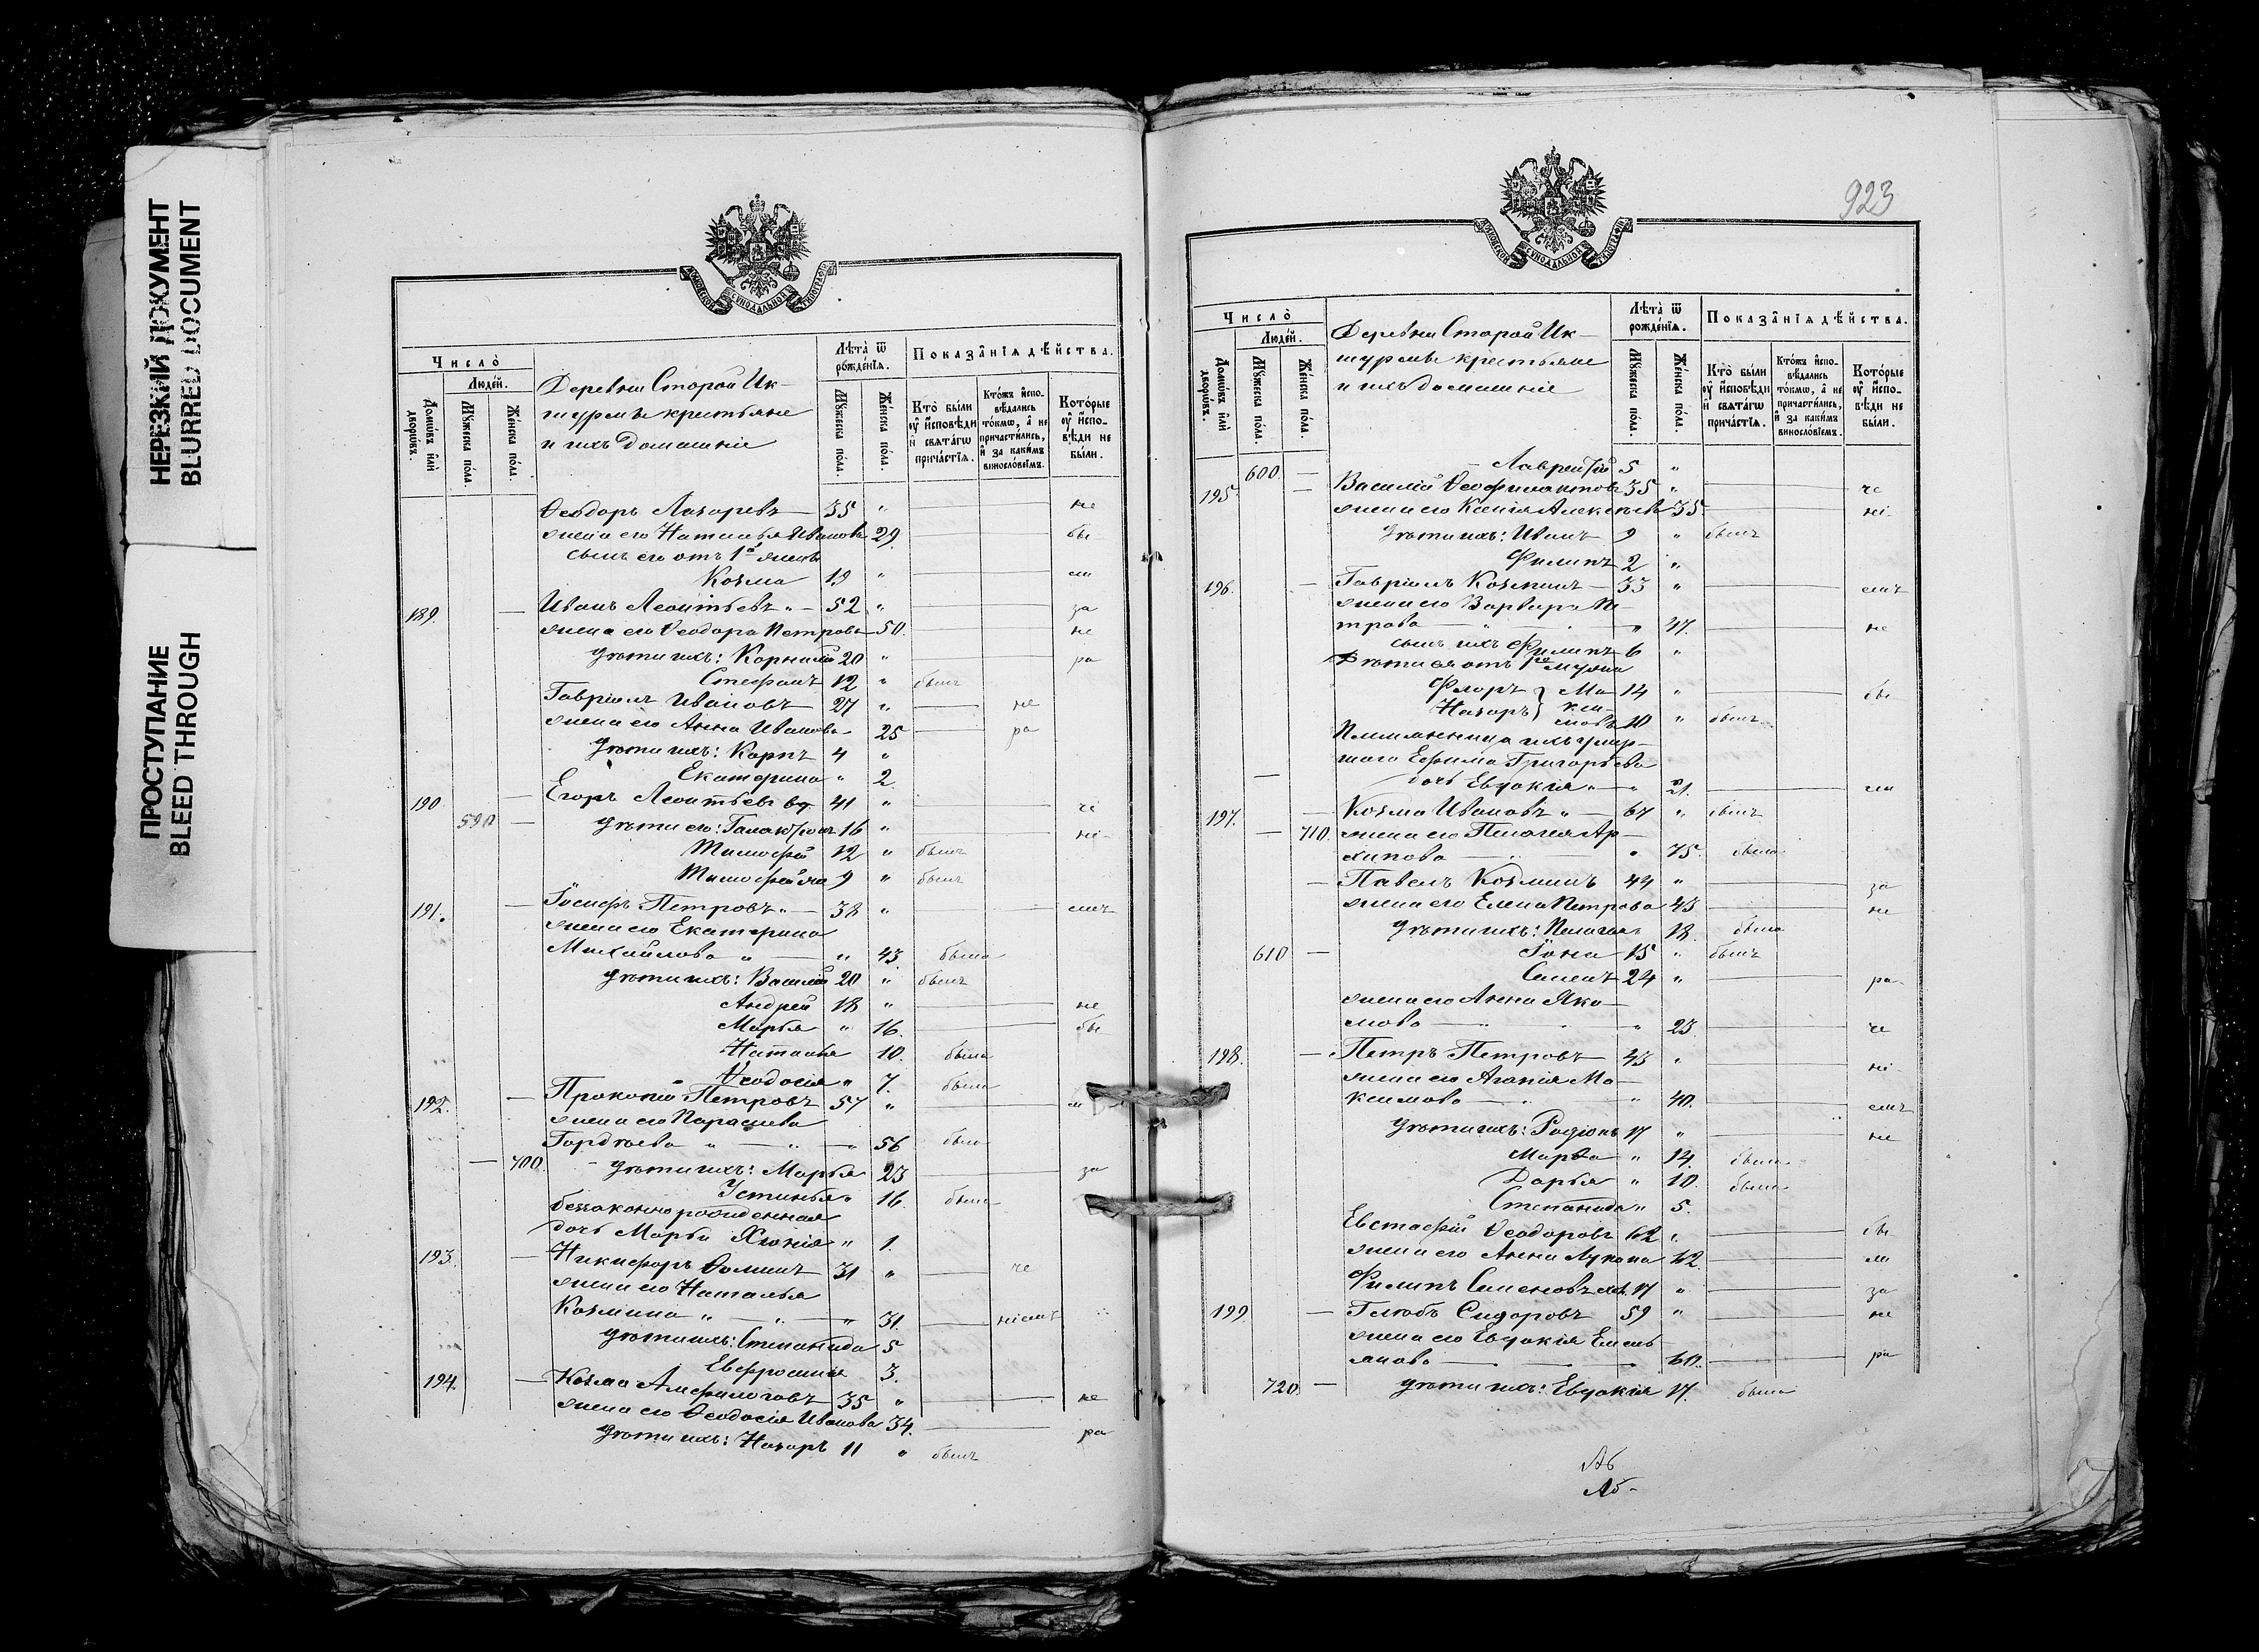 НЕРЕЗКИЙ ДОКУМЕНТ
BLURRED DOCUMENT
ПРОСТУПАНИЕ
BLEED THROUGH
МОСКОВСКОЙ СѴНОДАЛЬНОЙ ТИПОГРАФІИ
Число̀
Людей.
Домѡвъ и҆лѝ дворѡвъ.
Мꙋжеска по́ла.
Же́нска по́ла.
Деревни Старой Ик-
шурмы крестьяне
и ихъ домашніе
Лѣта̀ ѿ рожде́нія.
Мꙋжеска по́ла.
Же́нска по́ла.
Показа̂нія дѣ́йства.
Кто̀ бы́ли ᲂу҆ и҆сповѣди и҆ свѧта́гѡ прича́стїѧ.
Кто́жъ и҆спо-вѣдались то́кмѡ, а҆ не причасти́лись, и҆ за каки́мъ винослові́емъ.
Кото́рые ᲂу҆ и҆спо-вѣди не бы́ли.
Ѳеодоръ Лазаревъ — 35 " не
жена его Наталья Иванова 29. бы
сынъ его отъ 1й жены
Козма 19 " ли
189. — Иванъ Леонтьевъ " — 52 " за
жена его Ѳеодора Петрова 50. не
дѣти ихъ: Корнилій 20 " ра
Стефанъ 12 " былъ
Гавріилъ Ивановъ 27 " не
жена его Анна Иванова 25 ра
дѣти ихъ: Карпъ 4 "
Екатерина " 2.
190. — Егоръ Леонтьевъ вд. 41 " че
590 — дѣти его: Галактіонъ 16 " ні
Тимофей 12 " былъ
Тимофей 2й 9 " былъ
191. — Іосифъ Петровъ " — 38 " емъ
жена его Екатерина
Михайлова " — " 43. была
дѣти ихъ: Василій 20 " былъ
Андрей 18 " не
Марья " 16. бы
Наталья 10. была
Ѳеодосія " 7. была
192. — Прокопій Петровъ 57 "
жена его Параскева
Гордѣева " — " — 56 была
— 700. дѣти ихъ: Марья 23 за
Устинья " 16. была
беззаконнорожденная
дочь Марьи Хіонія " 1.
193. — Никифоръ Ѳоминъ 31 " не
жена его Наталья
Козмина " — " — " 31. ніемъ
дѣти ихъ: Степанида 5
Евфросинія 3.
194. — Козма Амфилоговъ 35 " не
жена его Ѳеодосія Иванова 34. ра
дѣти ихъ: Назаръ 11 " былъ
923
МОСКОВСКОЙ СѴНОДАЛЬНОЙ ТИПОГРАФІИ
Число̀
Людей.
Домѡвъ и҆лѝ дворѡвъ.
Мꙋжеска по́ла.
Же́нска по́ла.
Деревни Старой Ик-
шурмы крестьяне
и ихъ домашніе
Лѣта̀ ѿ рожде́нія.
Мꙋжеска по́ла.
Же́нска по́ла.
Показа̂нія дѣ́йства.
Кто̀ бы́ли ᲂу҆ и҆сповѣди и҆ свѧта́гѡ прича́стїѧ.
Кто́жъ и҆спо-вѣдались то́кмѡ, а҆ не причасти́лись, и҆ за каки́мъ винослові́емъ.
Кото́рые ᲂу҆ и҆спо-вѣди не бы́ли.
600. — Лаврентій 5 "
195. — Василій Ѳеофилактовъ 35 " че
жена его Ксенія Алексѣева 35. ні
дѣти ихъ: Иванъ 9 " былъ
Филипъ 2 "
196. — Гавріилъ Козминъ 33 " емъ
жена его Варвара Пе-
трова — " 47. не
сынъ ихъ Филипъ 6 "
Дѣти ея отъ 1го мужа
Флоръ } Ма- 14 " бы
Назаръ } ксимовы 10 " былъ
Племянница ихъ умер-
шаго Ефима Григорьева
— дочь Евдокія " — " 21. ли
197. — Козма Ивановъ " — 67 " былъ
— 710. жена его Пелагея Ар-
хипова — " 75. была
— Павелъ Козминъ 44 " за
жена его Елена Петрова 43 не
дѣти ихъ: Пелагея 18. была
610 — Іона 15 " былъ
Семенъ 24 " ра
жена его Анна Яко-
мова — " 23. че
198. — Петръ Петровъ 43 " ні
жена его Агапія Ма-
ксимова — " 40. емъ
дѣти ихъ: Родіонъ 17 " не
Марѳа " 14. была
Дарья " 10. была
Степанида " 5.
Евстафій Ѳеодоровъ 62 " бы
жена его Анна Лукина 62. ли
Филипъ Семеновъ 17 " за
199. — Глѣбъ Сидоровъ 59 " не
жена его Евдокія Емель-
янова — 60. ра
720. — дѣти ихъ: Евдокія 17. была